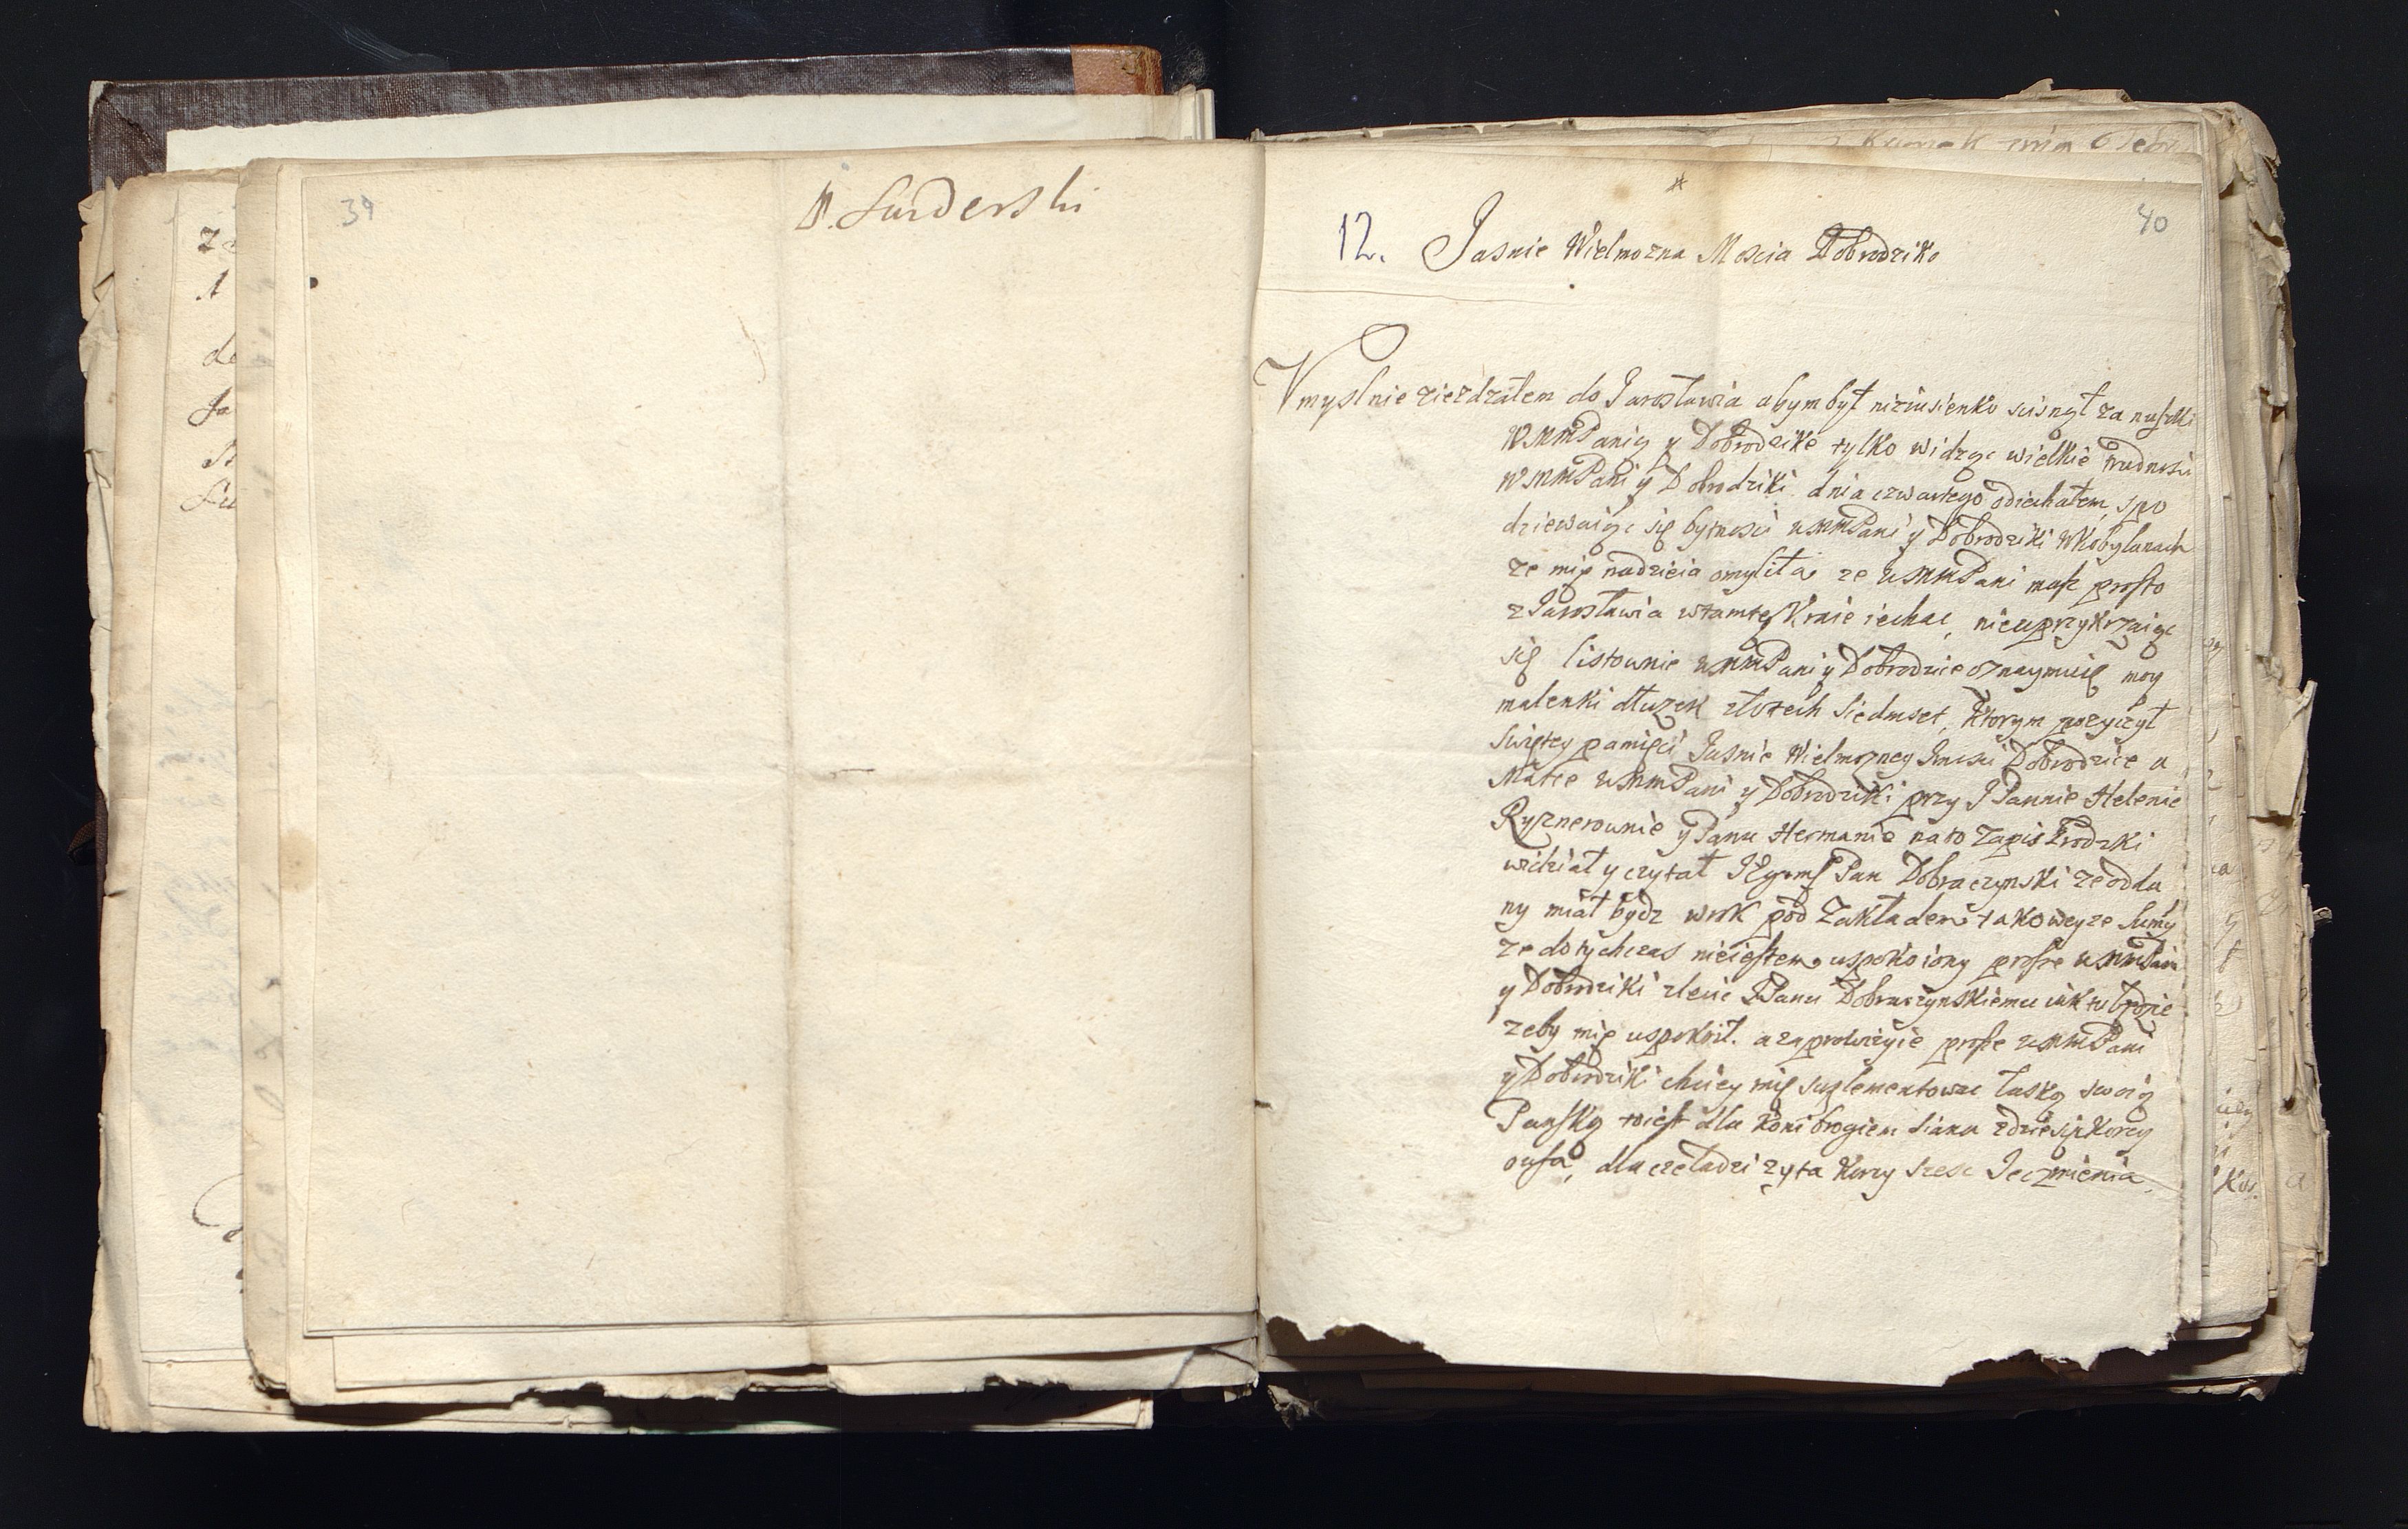 39
Surderski
40
12. Jasnie Wielmozna Moscia Dobrodziko
Vmyslnie ziezdzałem do Jarosławia abym był niziusienko scisnął za nuszki
WMMPanią y Dobrodzike tylko widząc wielkie trudnosci
WMMPani y Dobrodziki dnia czwartego odiechałem, spo
dziewaiąc się bytnosci WMMPani y Dobrodziki WKobylanach
ze mię nadzieia omyliła ze WMMPani masz prosto
z Jarosławia wtamte Kraie iechac, nieuprzykrzaiąc
się listownie WMMPani y Dobrodzice oznaymuię moy
malenki dłuzek złotech Siedmset, Ktorym pozyczył
swiętey pamięci Jasnie Wielmozney Jmosci Dobrodzice a
Matce WMMPani y Dobrodziki przy J Pannie Helenie
Ryznerownie y Panu Hermanie na to Zapis Grodzki
widział y czytał Pan Dobraczynski ze odda
ny miał bydz wrok pod Zakładem takoweyze Sumy
ze dotychczas nieiestem uspokoiony prosze WMMPani
y Dobrodziki zlecic JPanu Dobraczynskiemu iak tu będzie
zeby mię uspokoił. a zaprowizyie prosze WMMPani
y Dobrodziki chciey mię suplementowac łaską swoią
Panską toiest dla Koni brogiem siana zdziesiąKorcy
owsa, dla czeladzi zyta Korcy szesc Jeczmienia